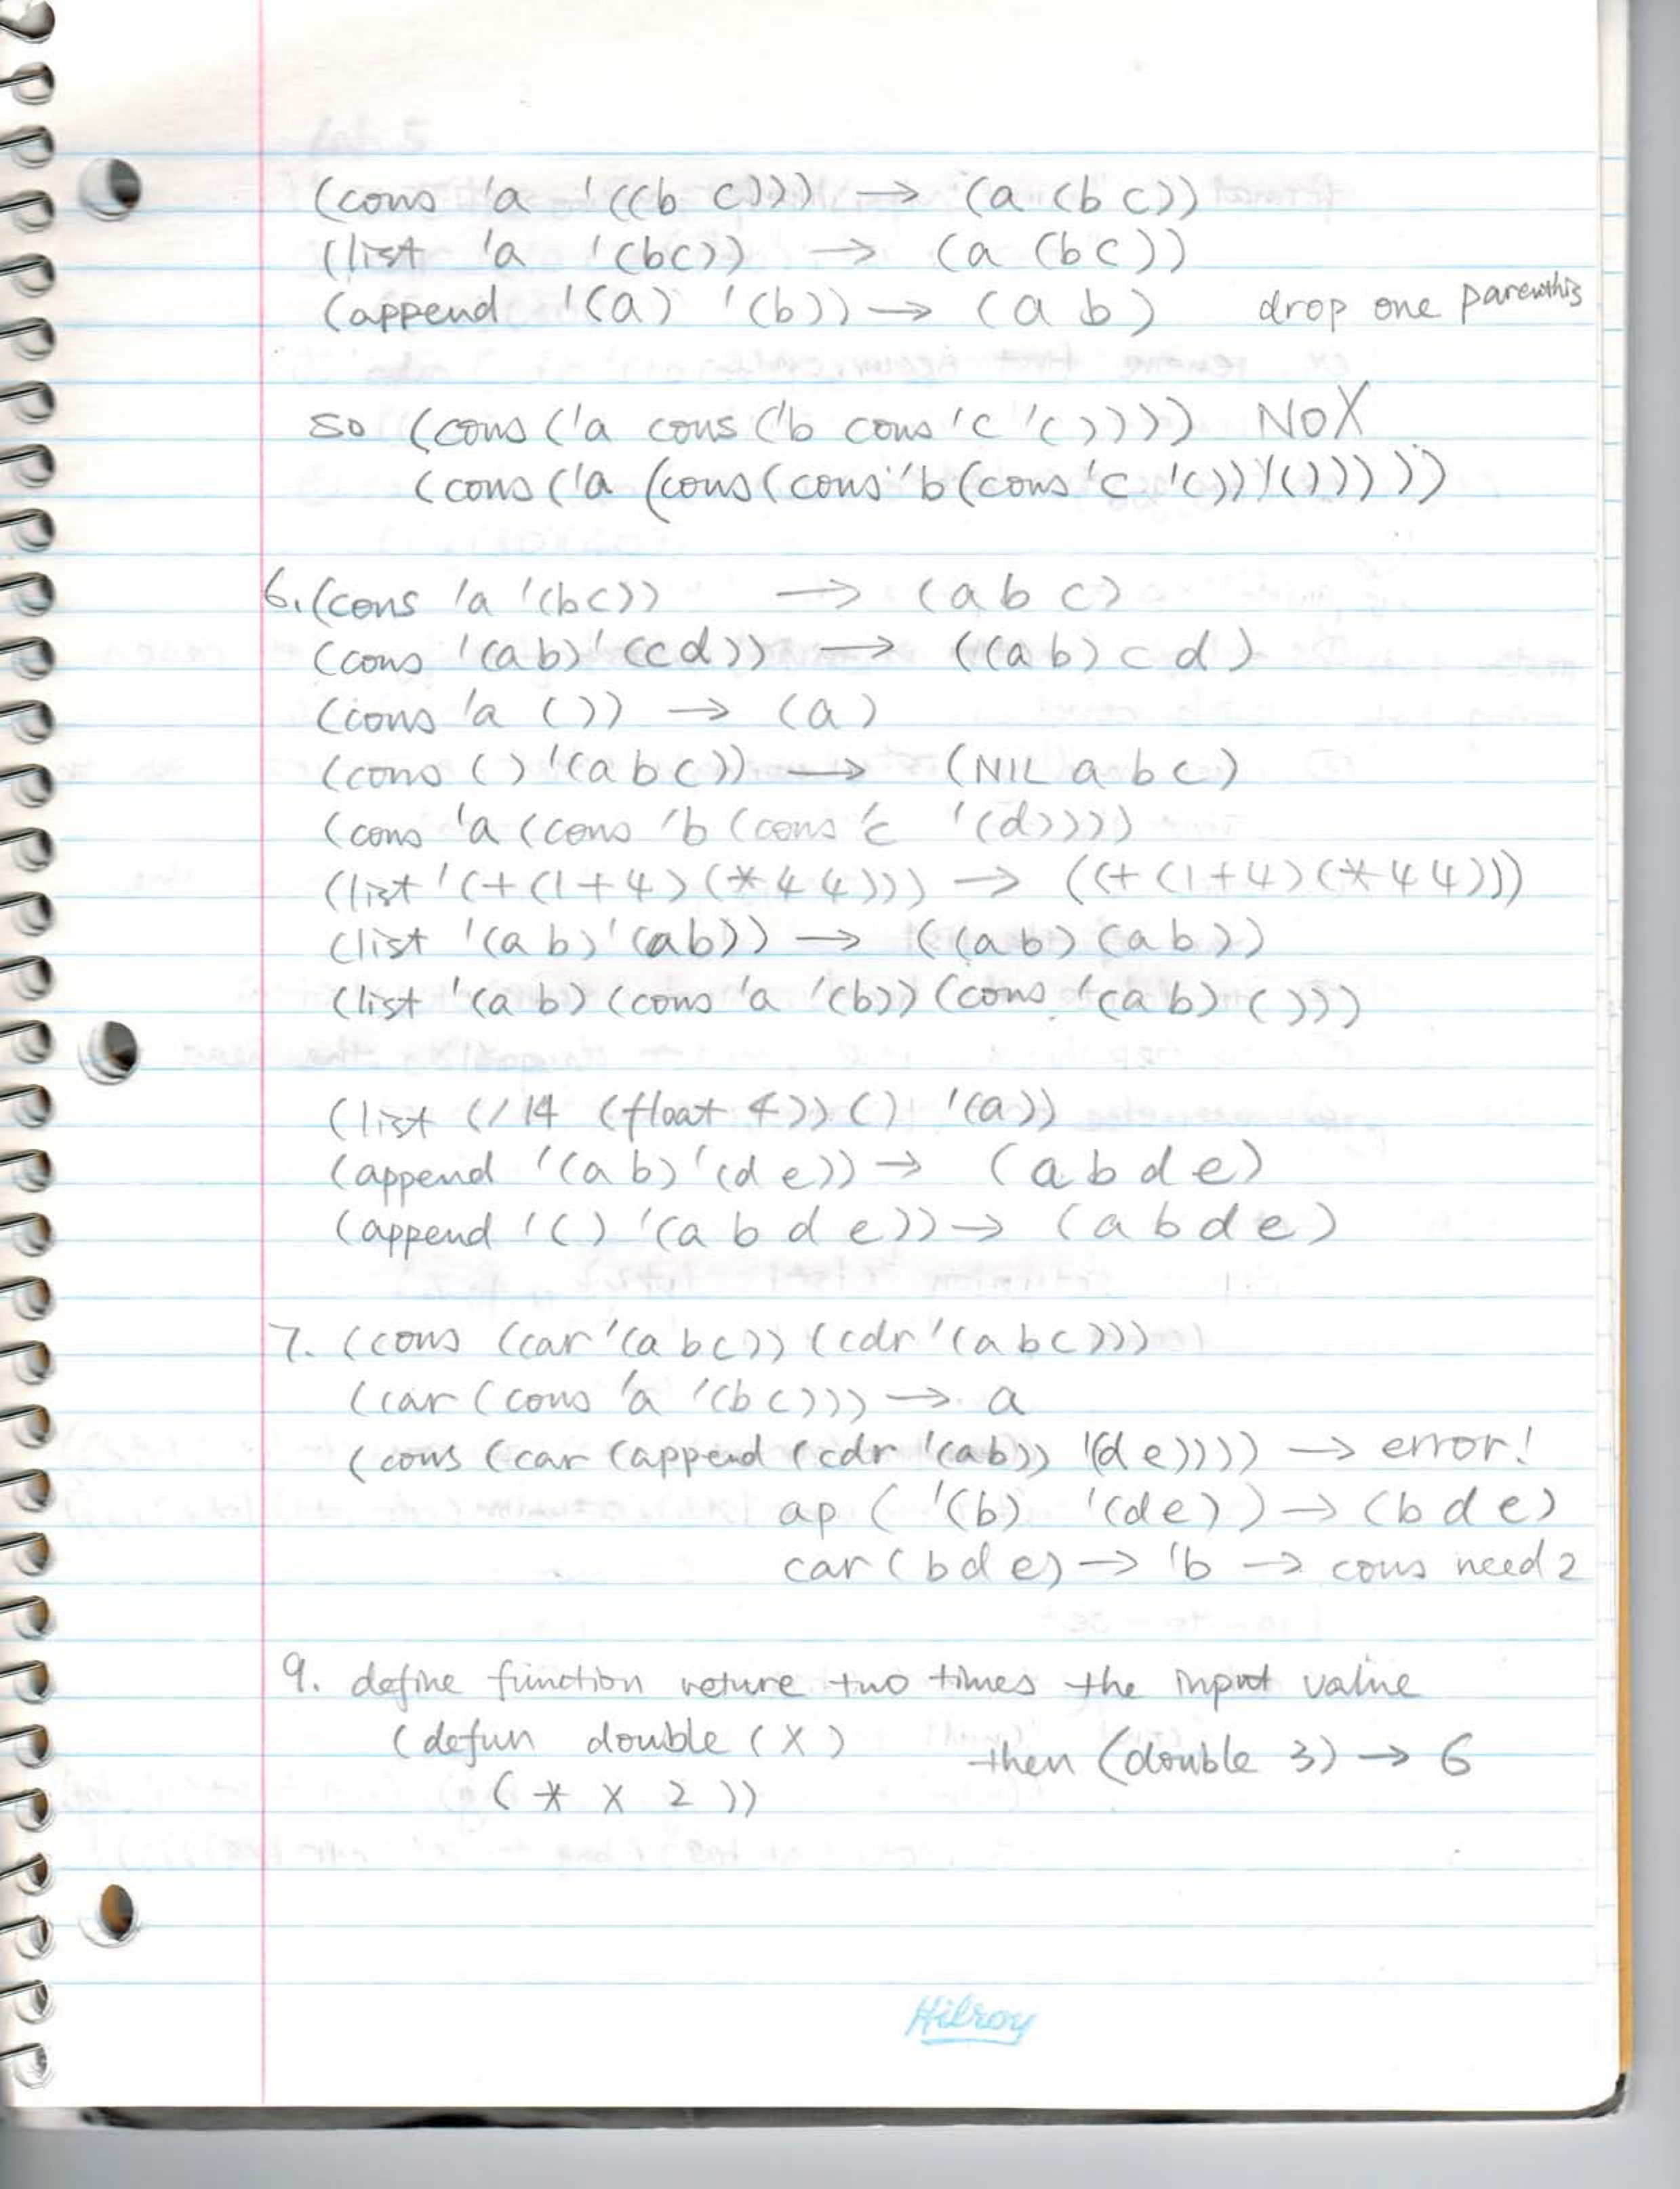 (cons 'a '((b c))) → (a (b c))
(list 'a '(bc)) → (a (bc))
(append '(a) '(b)) → (a b) drop one parenthis
so (cons ('a cons ('b cons 'c '())))) NO X
(cons ('a (cons (cons 'b (cons 'c '())) '()))))
6. (cons 'a '(bc)) → (a b c)
(cons '(ab) '(cd)) → ((ab) c d)
(cons 'a ()) → (a)
(cons () '(a b c)) → (NIL a b c)
(cons 'a (cons 'b (cons 'c '(d))))
(list '(+ (1+4) (* 4 4))) → ((+ (1+4) (* 4 4)))
(list '(a b) '(ab)) → ((ab) (ab))
(list '(a b) (cons 'a '(b)) (cons '(ab) ()))
(list (/ 14 (float 4)) () '(a))
(append '(a b) '(d e)) → (a b d e)
(append '() '(a b d e)) → (a b d e)
7. (cons (car '(a b c)) (cdr '(a b c)))
(car (cons 'a '(b c))) → a
(cons (car (append (cdr '(ab)) '(d e)))) → error!
ap ( '(b) '(de) ) → (b d e)
car (b d e) → 'b → cons need 2
9. define function reture two times the input value
(defun double (X) then (double 3) → 6
(* X 2 ))
Hilroy